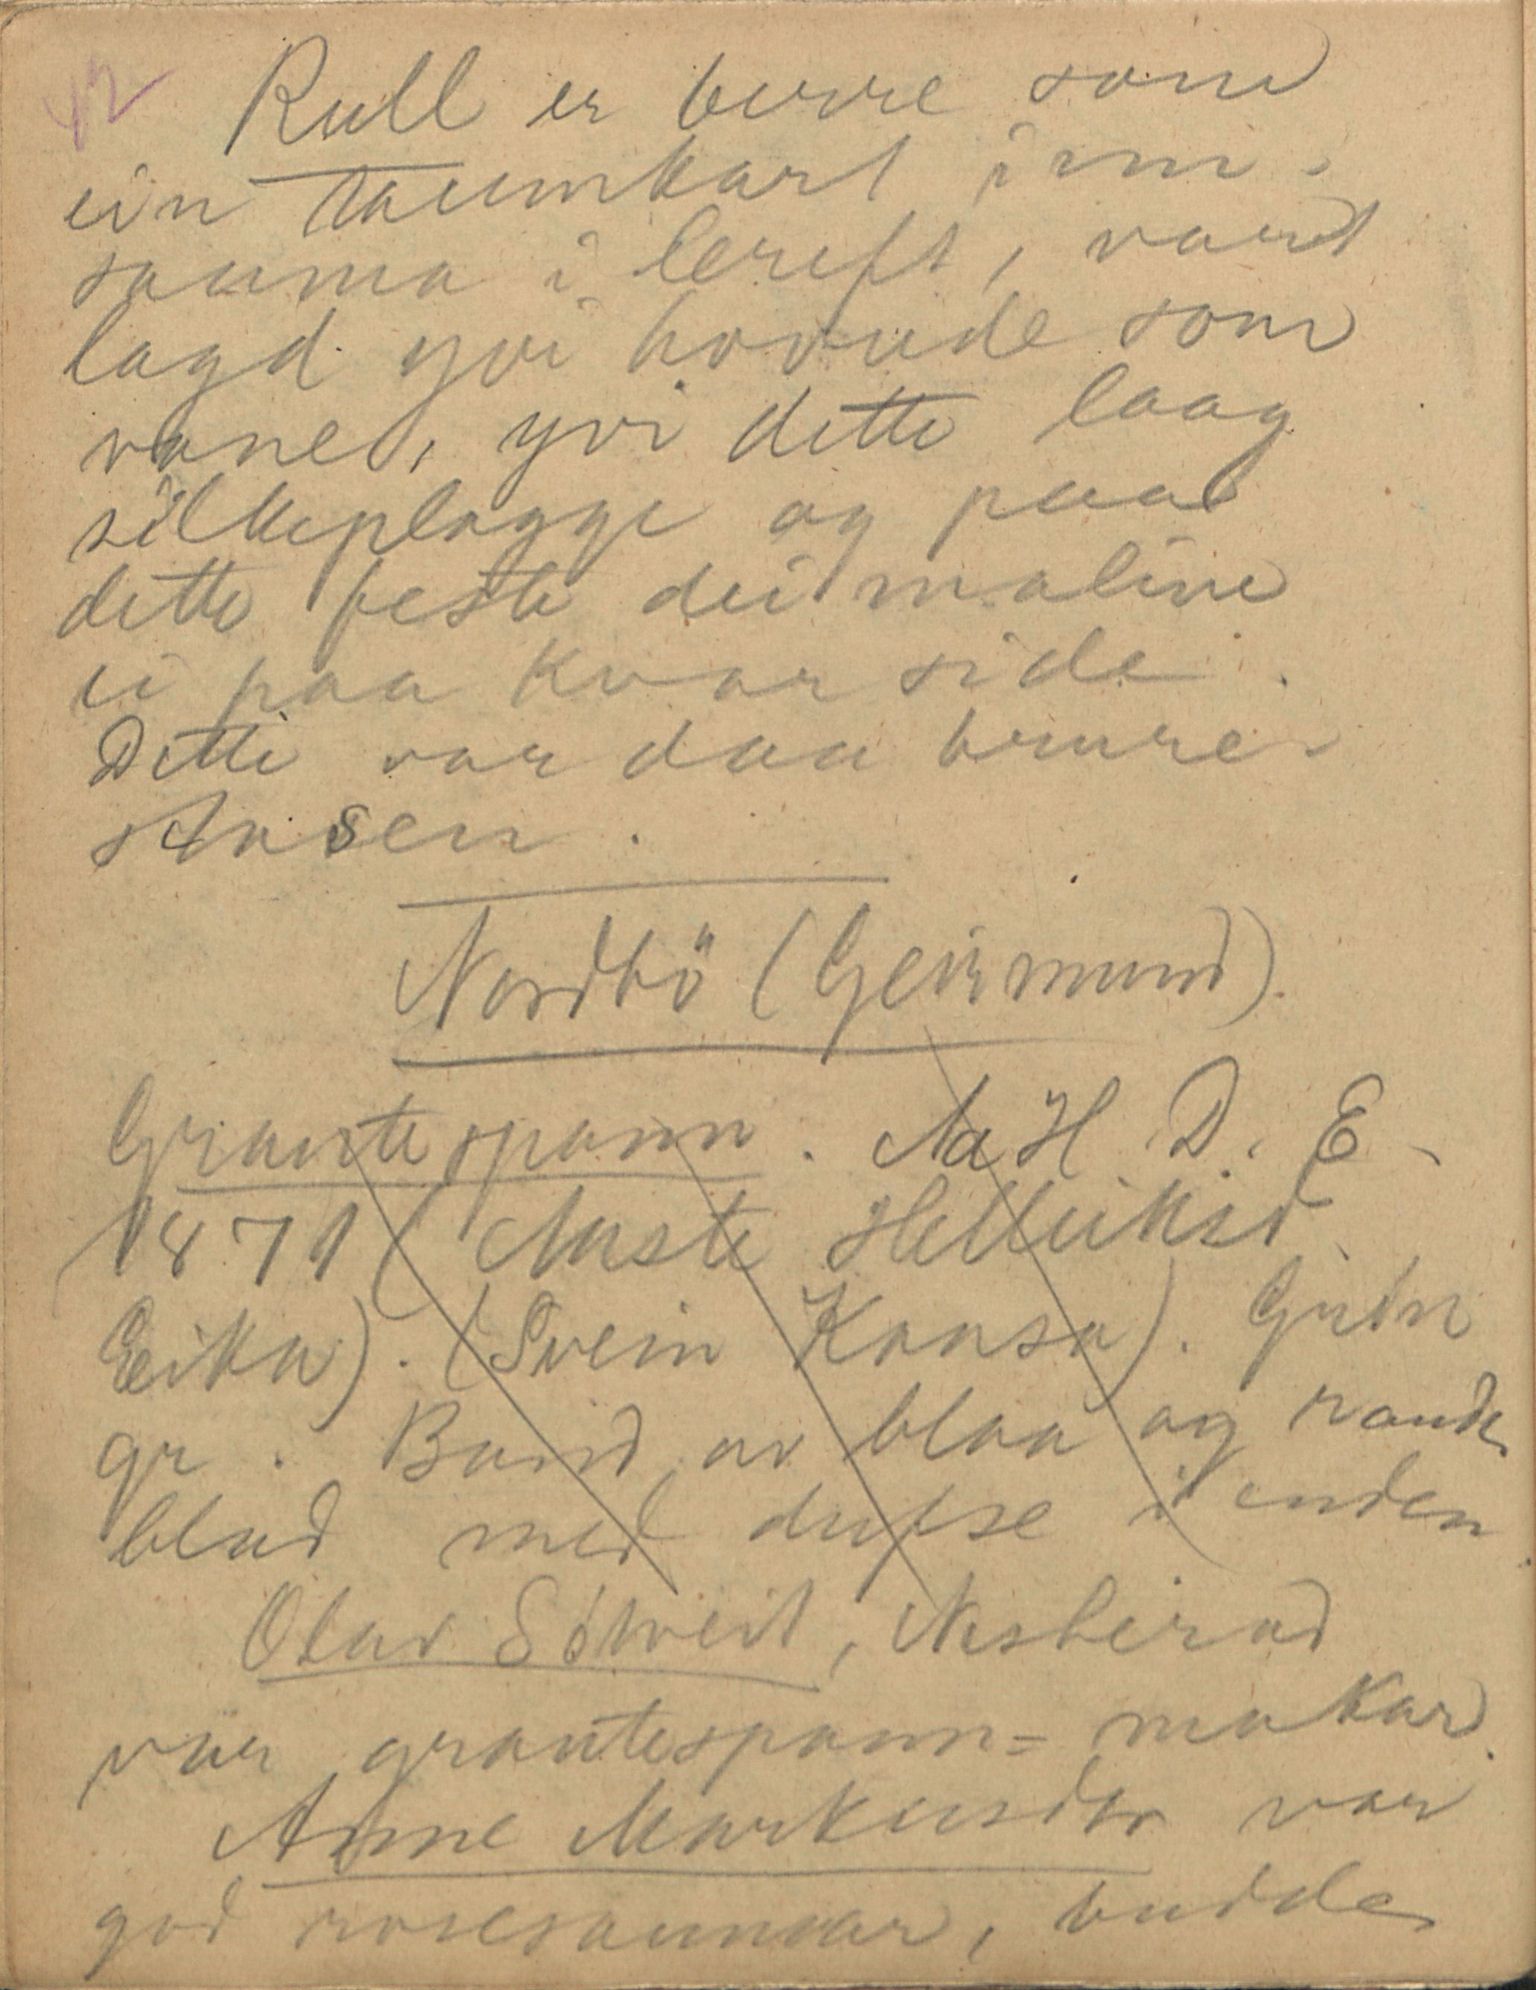 42
Rull er berre som
ein taumkarl inn-
sauma i lereft, vart
lagd yvi hovude som
vane, yvi dette laag
silkeplagge og paa
dette feste dei maline
ei paa kvar side.
Dette var daa brure-
stasen.
Nordbö (Geirmund).
Grautespann. Aa H. D. E-
1871 (Aaste Helleiksd
Eika). (Svein Kaasa). Grön
gr. Band av blaa og raude
blad med dufse i enden
Olav Sötveit, Nesherad
var grautespann=makar.
Anne Markusdtr var
god rosesaumar, budde